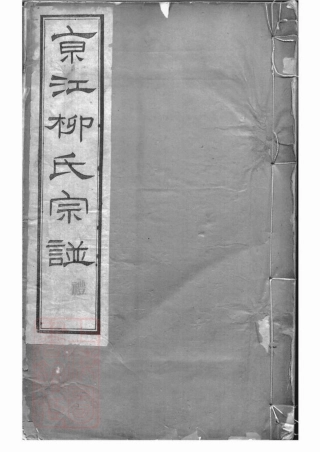 京江柳氏宗譜